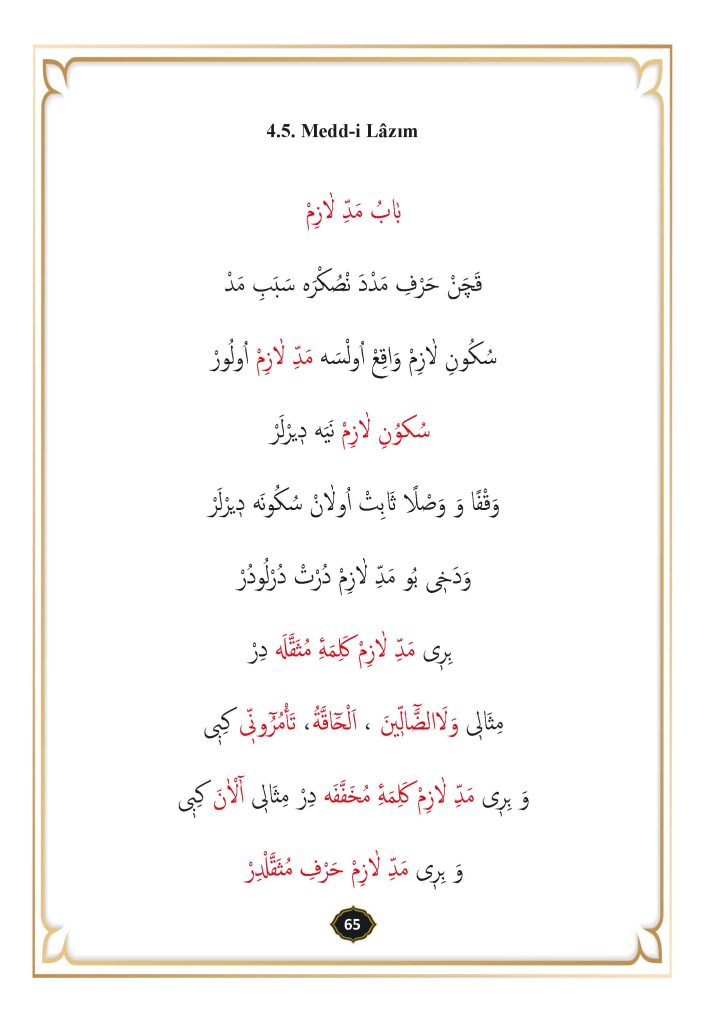 4.5. Medd-i Lâzım
بَابُ مَدِّ لَازِمْ
قَچَنْ حَرْفِ مَدْدَ نْصُكْرَه سَبَبِ مَدْ
سُكُونِ لَازِمْ وَاقِعْ اُولْسَه مَدِّ لَازِمْ اُولُورْ
سُكوُنِ لَازِمْ نَيَه دِيرْلَرْ
وَقْفًا وَ وَصْلًا ثَابِتْ اُولَانْ سُكُونَه دِيرْلَرْ
وَدَخِى بُو مَدِّ لَازِمْ دُرْتْ دُرْلُودُرْ
بِرِى مَدِّ لَازِمْ كَلِمَۀِ مُثَقَّلَه دِرْ
مِثَالِى وَلَاالضَّٓالِّينَ ، اَلْحَٓاقَّةُ، تَأْمُرُٓونِّى كِبِى
وَ بِرِى مَدِّ لَازِمْ كَلِمَۀِ مُخَفَّفَه دِرْ مِثَالِى آٰلْاٰنَ كِبِى
وَ بِرِى مَدِّ لَازِمْ حَرْفِ مُثَقَّلْدِرْ
65